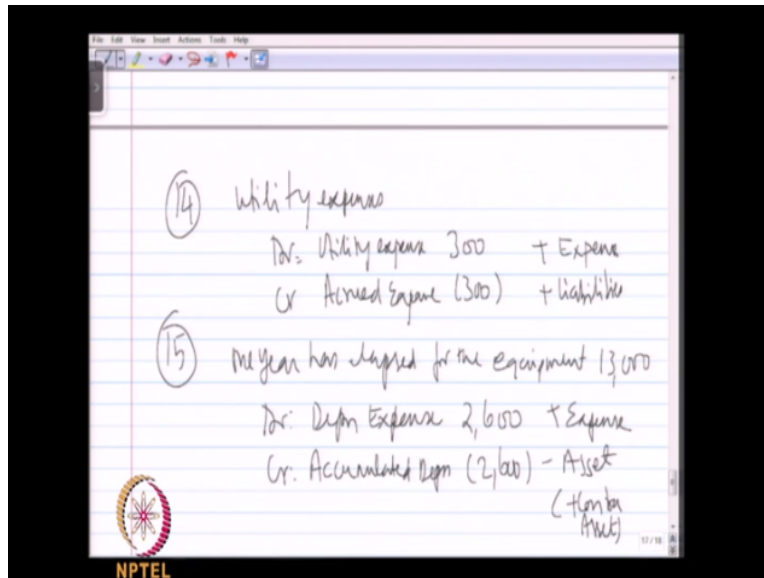 File Edit View Insert Actions Tools Help
14 Utility expenses
Dr: Utility expense 300 + Expense
Cr Accrued Expense (300) + Liabilities
15 One year has elapsed for the equipment 13,000
Dr: Depn Expense 2,600 + Expense
Cr: Accumulated Depn (2,600) - Asset
(+Contra
Asset)
17 / 18
NPTEL